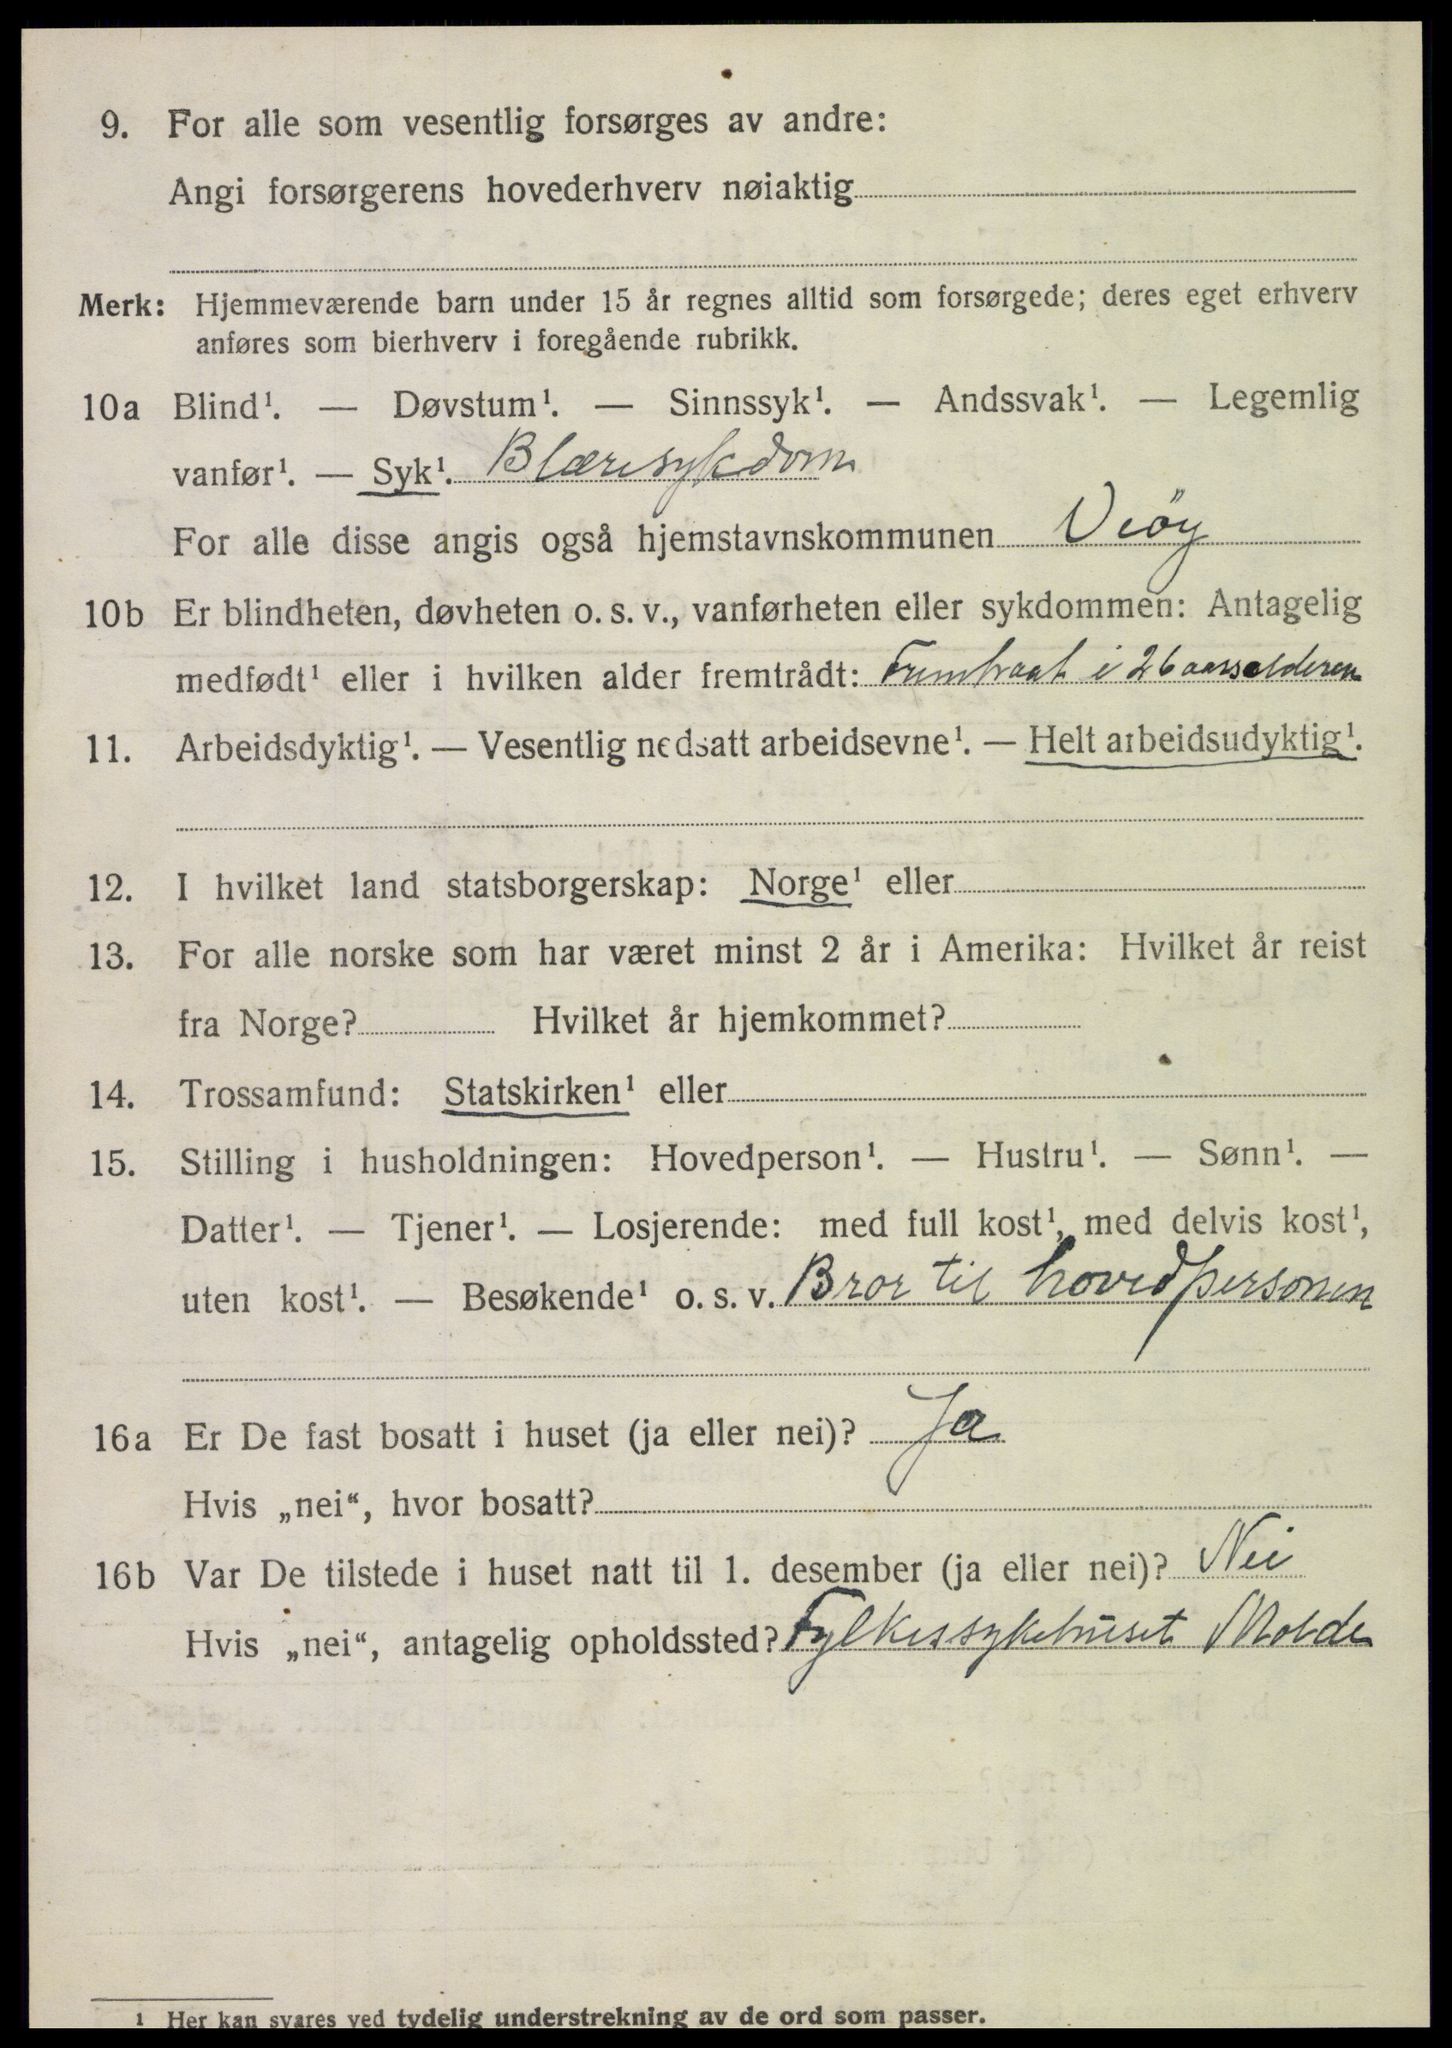 9. For alle som vesentlig forsørges av andre:
Angi forsørgerens hovederhverv nøiaktig
Merk: Hjemmeværende barn under 15 år regnes alltid som forsørgede; deres eget erhverv
anføres som bierhverv i foregående rubrikk.
10a Blind¹. — Døvstum¹. — Sinnssyk¹. — Andssvak¹. — Legemlig
vanfør¹. — Syk¹. Blæresykdom
For alle disse angis også hjemstavnskommunen Veøy
10b Er blindheten, døvheten o. s. v., vanførheten eller sykdommen: Antagelig
medfødt¹ eller i hvilken alder fremtrådt: Fremtraat i 26 aarsalderen
11. Arbeidsdyktig¹. — Vesentlig nedsatt arbeidsevne¹. — Helt arbeidsudyktig¹.
12. I hvilket land statsborgerskap: Norge¹ eller
13. For alle norske som har været minst 2 år i Amerika: Hvilket år reist
fra Norge? Hvilket år hjemkommet?
14. Trossamfund: Statskirken¹ eller
15. Stilling i husholdningen: Hovedperson¹. — Hustru¹. — Sønn¹. —
Datter¹. — Tjener¹. — Losjerende: med full kost¹, med delvis kost¹,
uten kost¹. — Besøkende¹ o. s. v. Bror til hovedpersonen
16a Er De fast bosatt i huset (ja eller nei)? Ja
Hvis „nei“, hvor bosatt?
16b Var De tilstede i huset natt til 1. desember (ja eller nei)? Nei
Hvis „nei“, antagelig opholdssted? Fylkessykehuset Molde
¹ Her kan svares ved tydelig understrekning av de ord som passer.